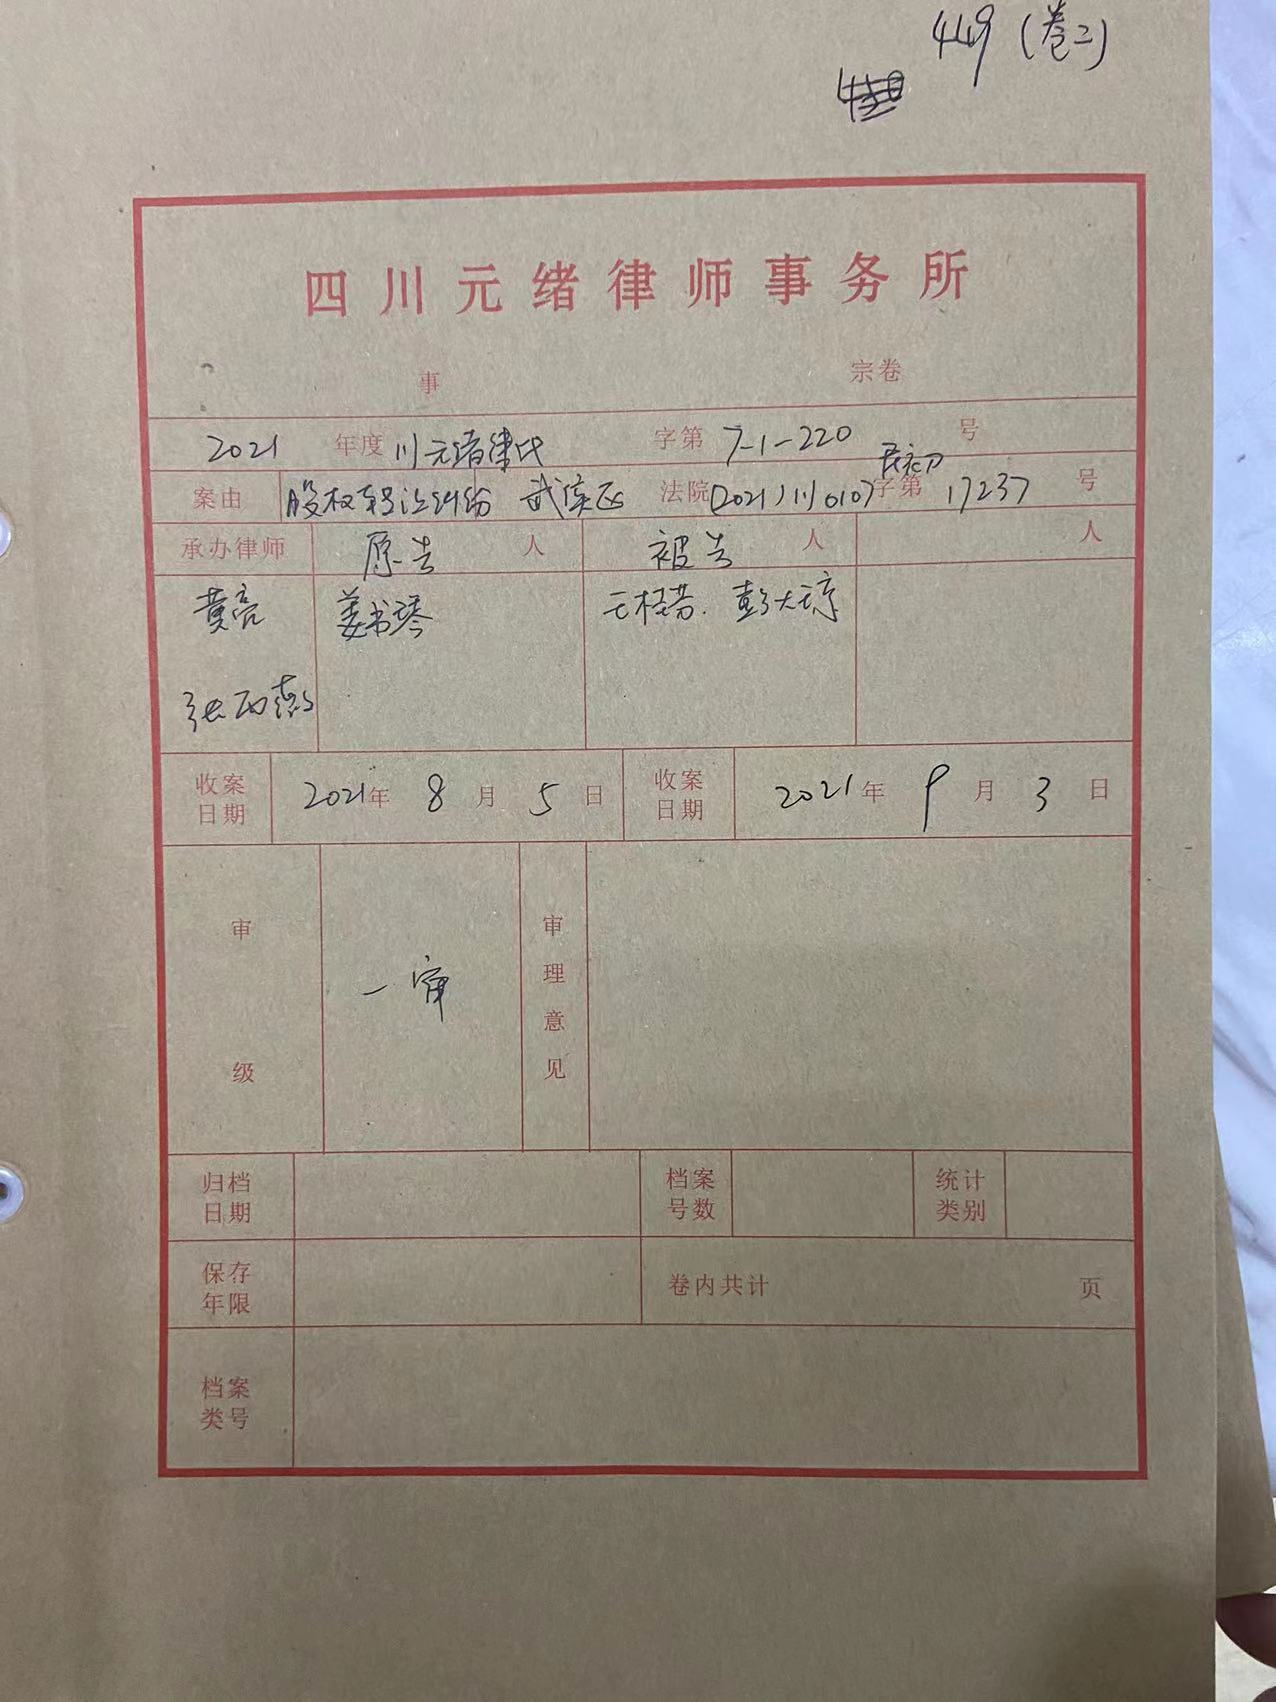 449（卷二）
四川元绪律师事务所
事 宗卷
2021 年度 川元绪律代 字第 7-1-220 号
案由 股权转让纠纷 武侯区 法院 (2021)川0107 民初 字第 17237 号
承办律师 原告 人 被告 人 人
黄亮 姜书琴 彭大
张西
收案日期 2021年 8 月 5 日 收案日期 2021年 9 月 3 日
审级 一审 审理意见
归档日期 档案号数 统计类别
保存年限 卷内共计 页
档案类号